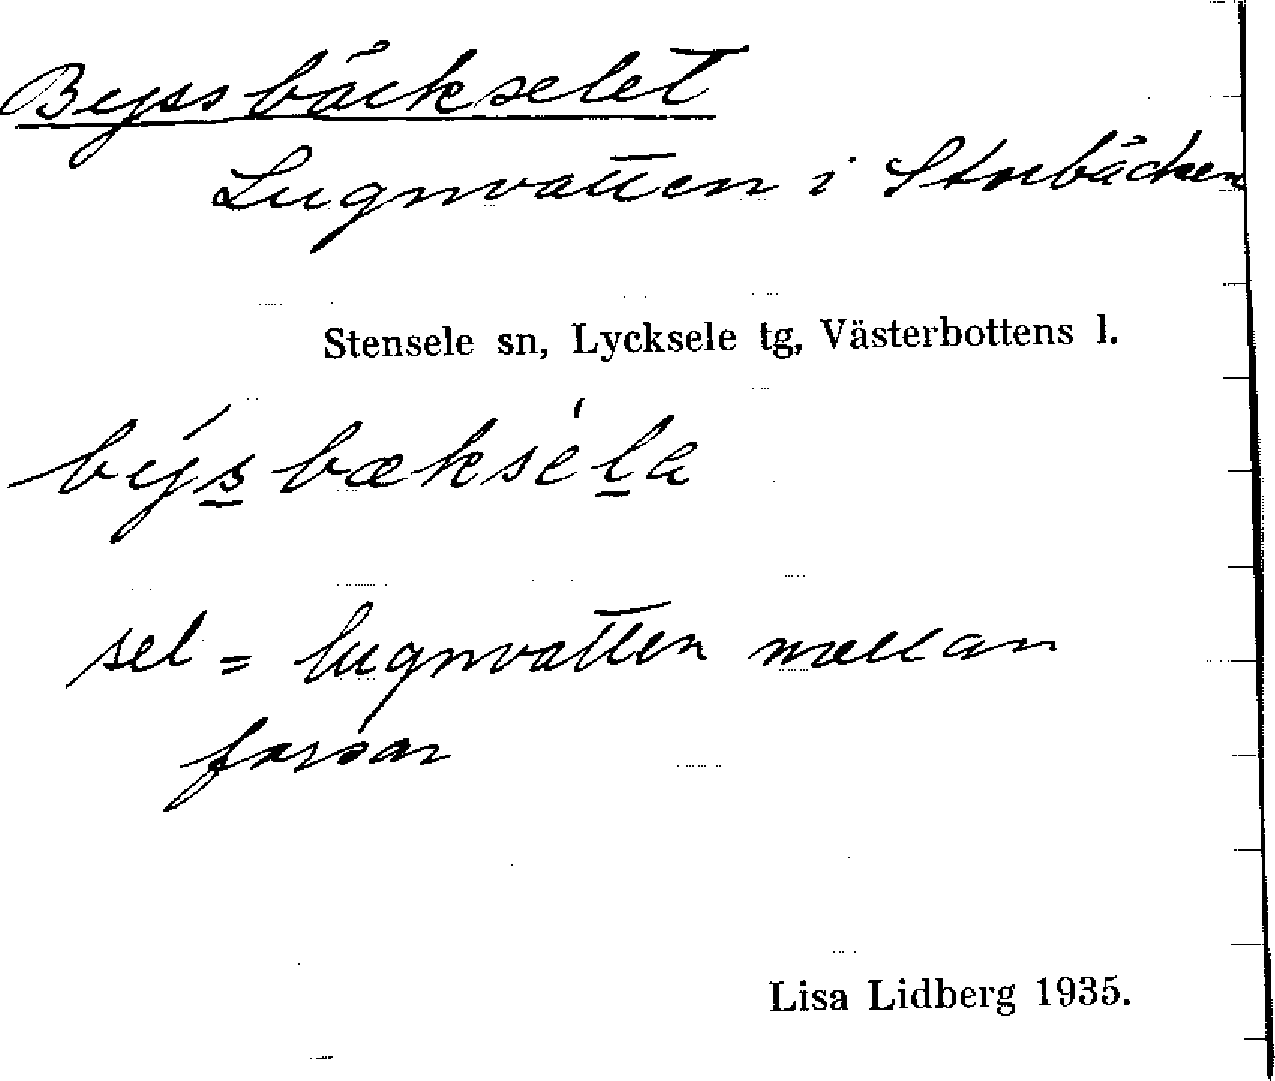 Byssbäckselet
Lugnvatten i Storbäcken
Stensele sn, Lycksele tg, Västerbottens l.
býs̲bækse̍l̲a
sel = lugnvatten mellan
forsar
Lisa Lidberg 1935.